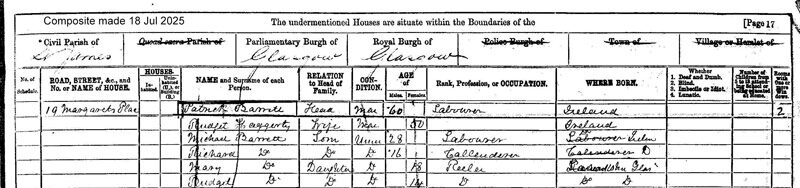 Composite made 18 Jul 2025 The undermentioned Houses are situate within the Boundaries of the [Page 17
Civil Parish of Quoad sacra Parish of Parliamentary Burgh of Royal Burgh of Police Burgh of Town of Village or Hamlet of
St James Glasgow Glasgow
No. of Schedule. ROAD, STREET, &c., and No. or NAME of HOUSE. HOUSES. Inhabited. Uninhabited (U.), or Building (B.) NAME and Surname of each Person. RELATION to Head of Family. CONDITION. AGE of Males. Females. Rank, Profession, or OCCUPATION. WHERE BORN. Whether 1. Deaf and Dumb. 2. Blind. 3. Imbecile or Idiot. 4. Lunatic.
19 Margarets Place Patrick Barrett Head Mar 60 Labourer Ireland 2
Bridget Haggerty Wife Mar 50 Ireland
Michael Barrett Son Unm 28 Labourer
Richard Do Do Do 16 Callenderer
Mary Do Daughter Do 18 Reeler
Bridget Do Do Do 14 Do Do Do